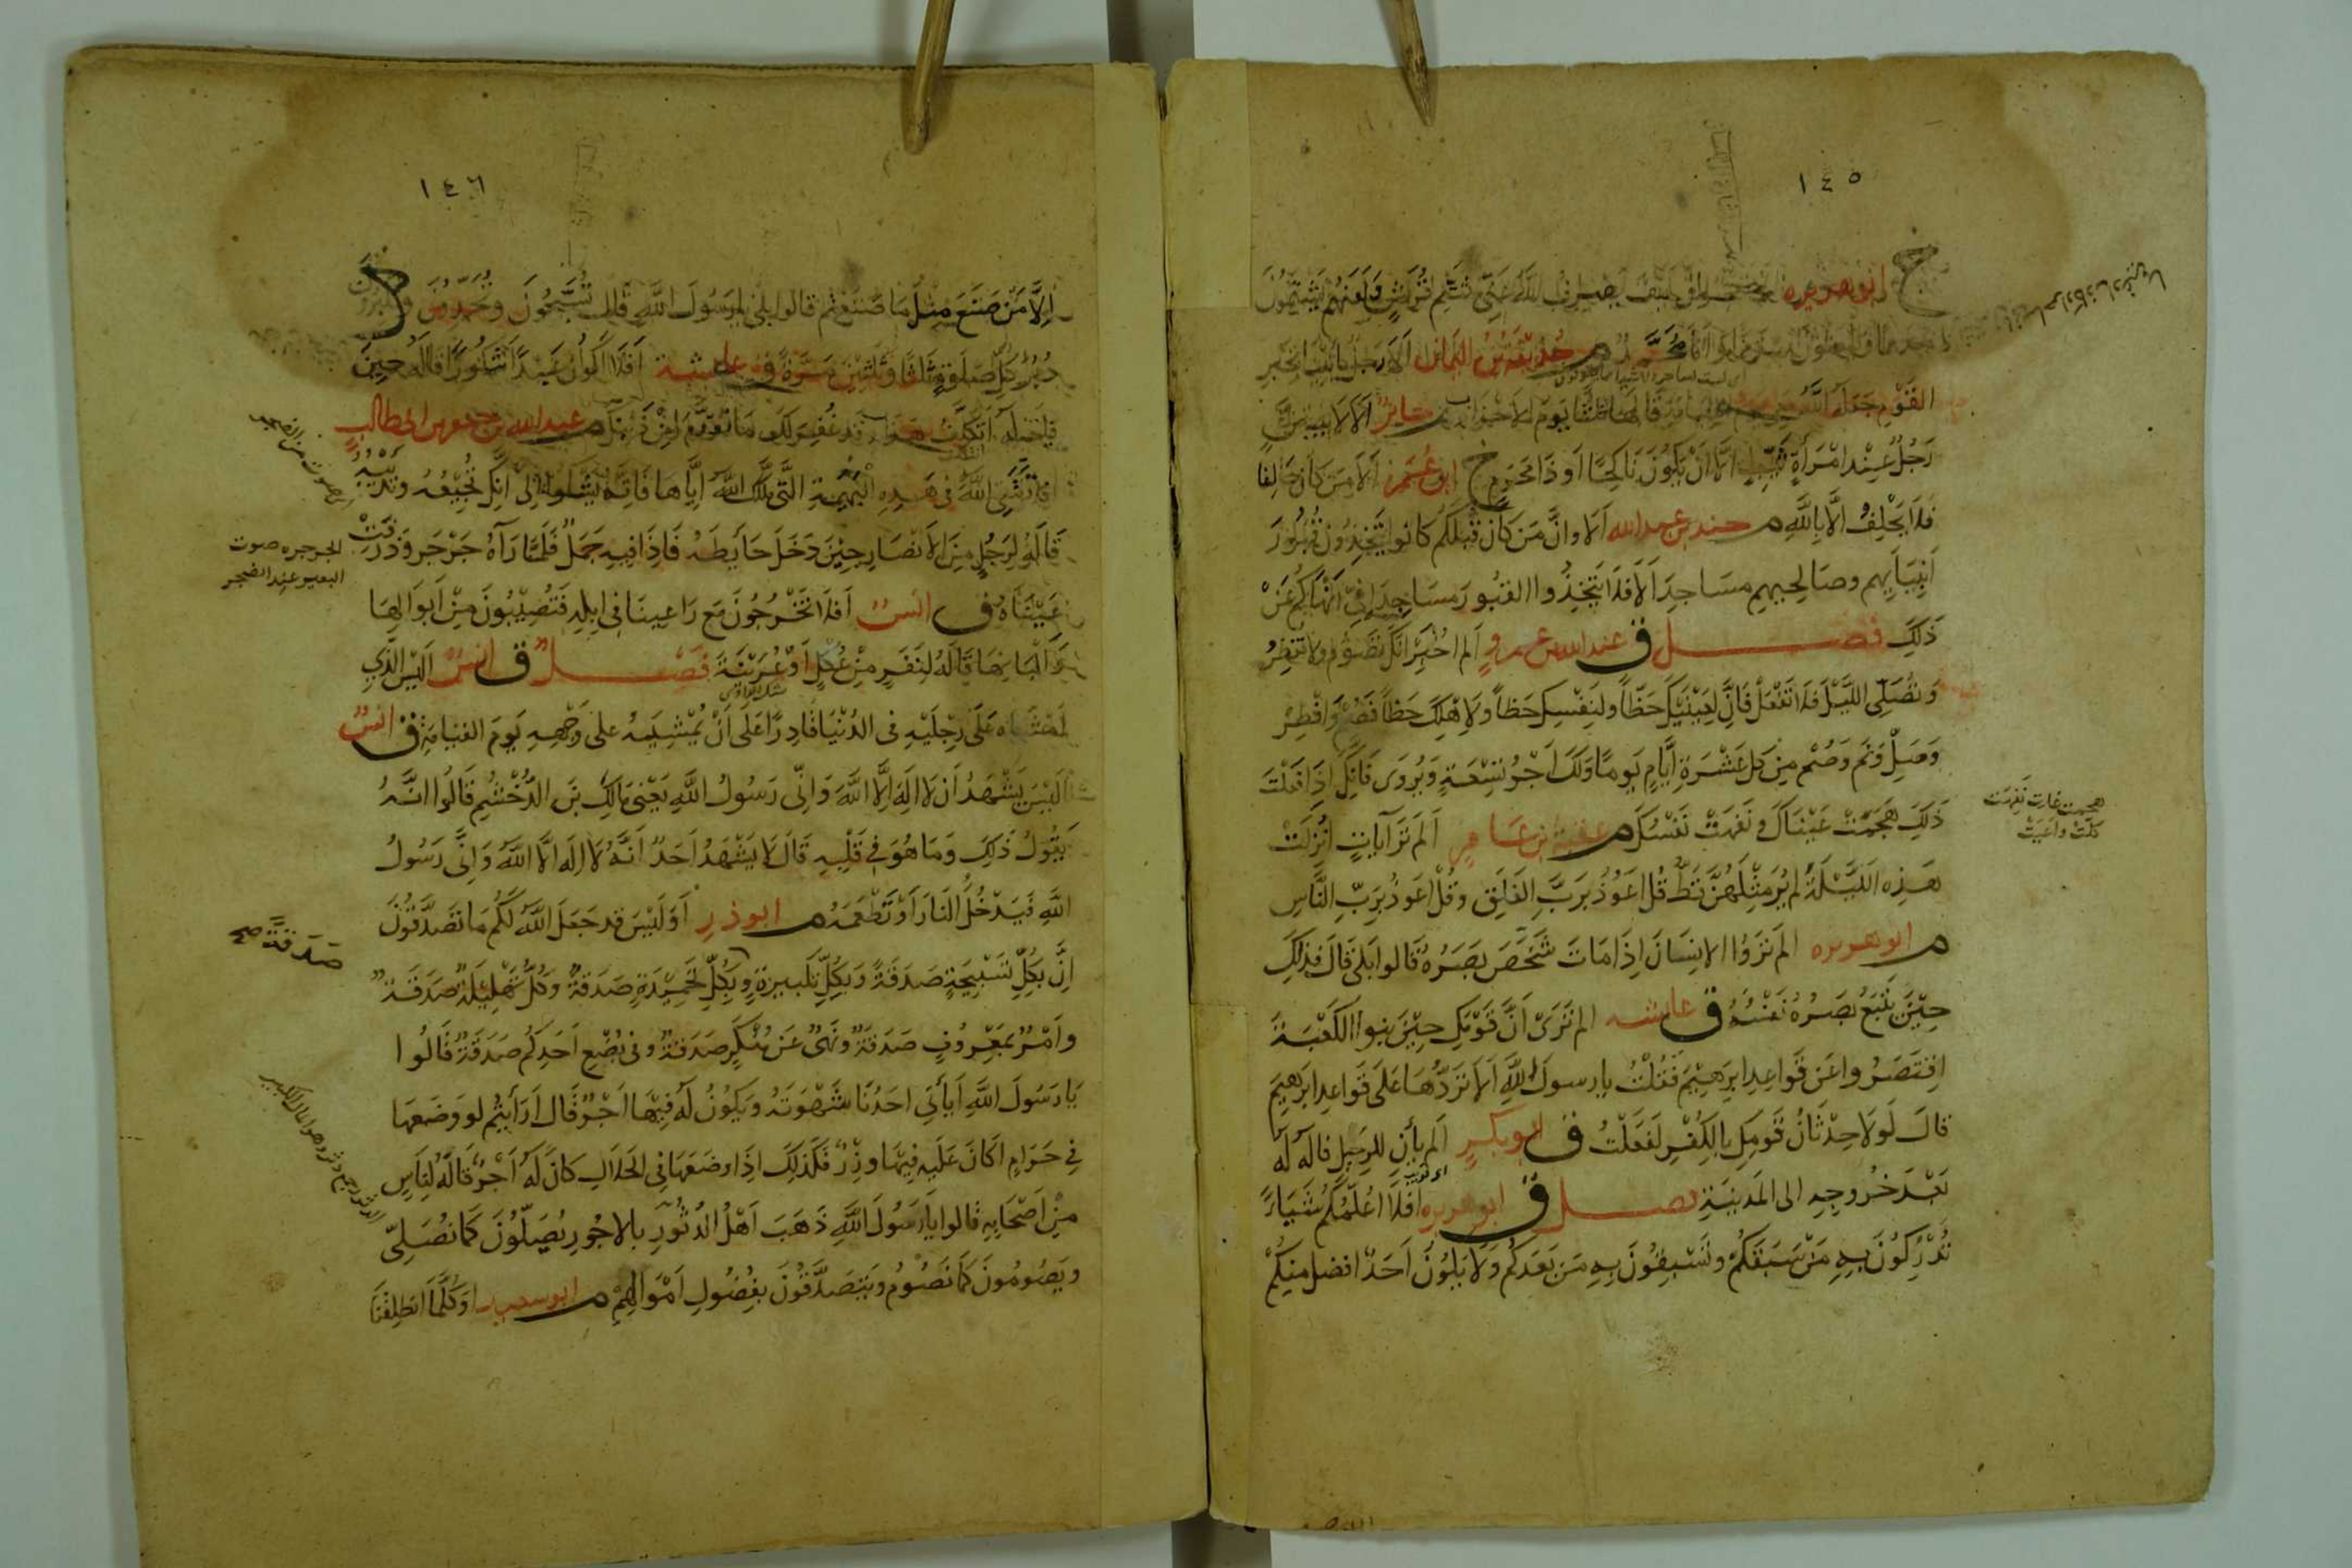 ١٤٥
خ ابو هريره الا تعجبون كيف يصرف الله عني شتم قريش ولعنهم يشتمون
مذمما ويلعنون مذمما وانا محمد م حذيفة بن اليمان الا رجل يأتيني بخبر
القوم جعله الله معي يوم القيامة قاله ثلثا يوم الاحزاب م جابر الا لا يبيتن
رجل عند امرأة ثيب الا ان يكون ناكحا او ذا محرم خ ابن عمر الا من كان حالفا
فلا يحلف الا بالله م جندب بن عبد الله الا وان من كان قبلكم كانوا يتخذون قبور
انبيايهم وصالحيهم مساجد الا فلا تتخذوا القبور مساجد اني انهاكم عن
ذلك فصل ق عبد الله بن عمرو الم اخبر انك تصوم ولا تفطر
وتصلي الليل فلا تفعل فان لعينيك حظا ولنفسك حظا ولاهلك حظا فصم وافطر
وصل ونم وصم من كل عشرة ايام يوما ولك اجر تسعة ويروى فانك اذا فعلت
ذلك هجمت عيناك ونفهت نفسك م عقبة بن عامر الم تر آيات انزلت
هذه الليلة لم ير مثلهن قط قل اعوذ برب الفلق وقل اعوذ برب الناس
م ابو هريره الم تروا الانسان اذا مات شخص بصره قالوا بلى قال فذلك
حين يتبع بصره نفسه ق عايشه الم ترى ان قومك حين بنوا الكعبة
اقتصروا عن قواعد ابرهيم فقلت يا رسول الله الا تردها على قواعد ابرهيم
قال لولا حدثان قومك بالكفر لفعلت ق ابو بكر الم يأن للرحيل قاله له
بعد خروجه الى المدينة فصل ق ابو هريره افلا اعلمكم شيئا
تدركون به من سبقكم وتسبقون به من بعدكم ولا يكون احد افضل منكم
هجمت غارت نفهت
كلت واعيت
١٤٦
الا من صنع مثل ما صنعتم قالوا بلى يا رسول الله قال تسبحون وتحمدون وتكبرون
دبر كل صلوة ثلثا وثلثين مرة ق عايشة افلا اكون عبدا شكورا قاله حين
قيل له اتكلف هذا وقد غفر لك ما تقدم من ذنبك م عبد الله بن جعفر بن ابي طالب
افلا تتقي الله في هذه البهيمة التي ملكك الله اياها فانه يشكو الي انك تجيعه وتدئبه
قاله لرجل من الانصار حين دخل حايطه فاذا فيه جمل فلما رآه جرجر وذرفت
عيناه ق انس افلا تخرجون مع راعينا في ابله فتصيبون من ابوالها
والبانها قاله لنفر من عكل او عرينة فصل ق انس اليس الذي
امشاه على رجليه في الدنيا قادرا على ان يمشيه على وجهه يوم القيامة ق انس
اليس يشهد ان لا اله الا الله واني رسول الله يعني مالك بن الدخشم قالوا انه
يقول ذلك وما هو في قلبه قال لا يشهد احد انه لا اله الا الله واني رسول
الله فيدخل النار او تطعمه م ابو ذر اوليس قد جعل الله لكم ما تصدقون
ان بكل تسبيحة صدقة وبكل تكبيرة وبكل تحميدة صدقة وكل تهليلة صدقة
وامر بمعروف صدقة ونهي عن منكر صدقة وفي بضع احدكم صدقة قالوا
يا رسول الله أيأتي احدنا شهوته ويكون له فيها اجر قال ارأيتم لو وضعها
في حرام اكان عليه فيها وزر فكذلك اذا وضعها في الحلال كان له اجر قاله لناس
من اصحابه قالوا يا رسول الله ذهب اهل الدثور بالاجور يصلون كما نصلي
ويصومون كما نصوم ويتصدقون بفضول اموالهم م ابو سعيد اوكلما انطلقنا
الجرجره صوت
البعير عند الضجر
صدقة صح